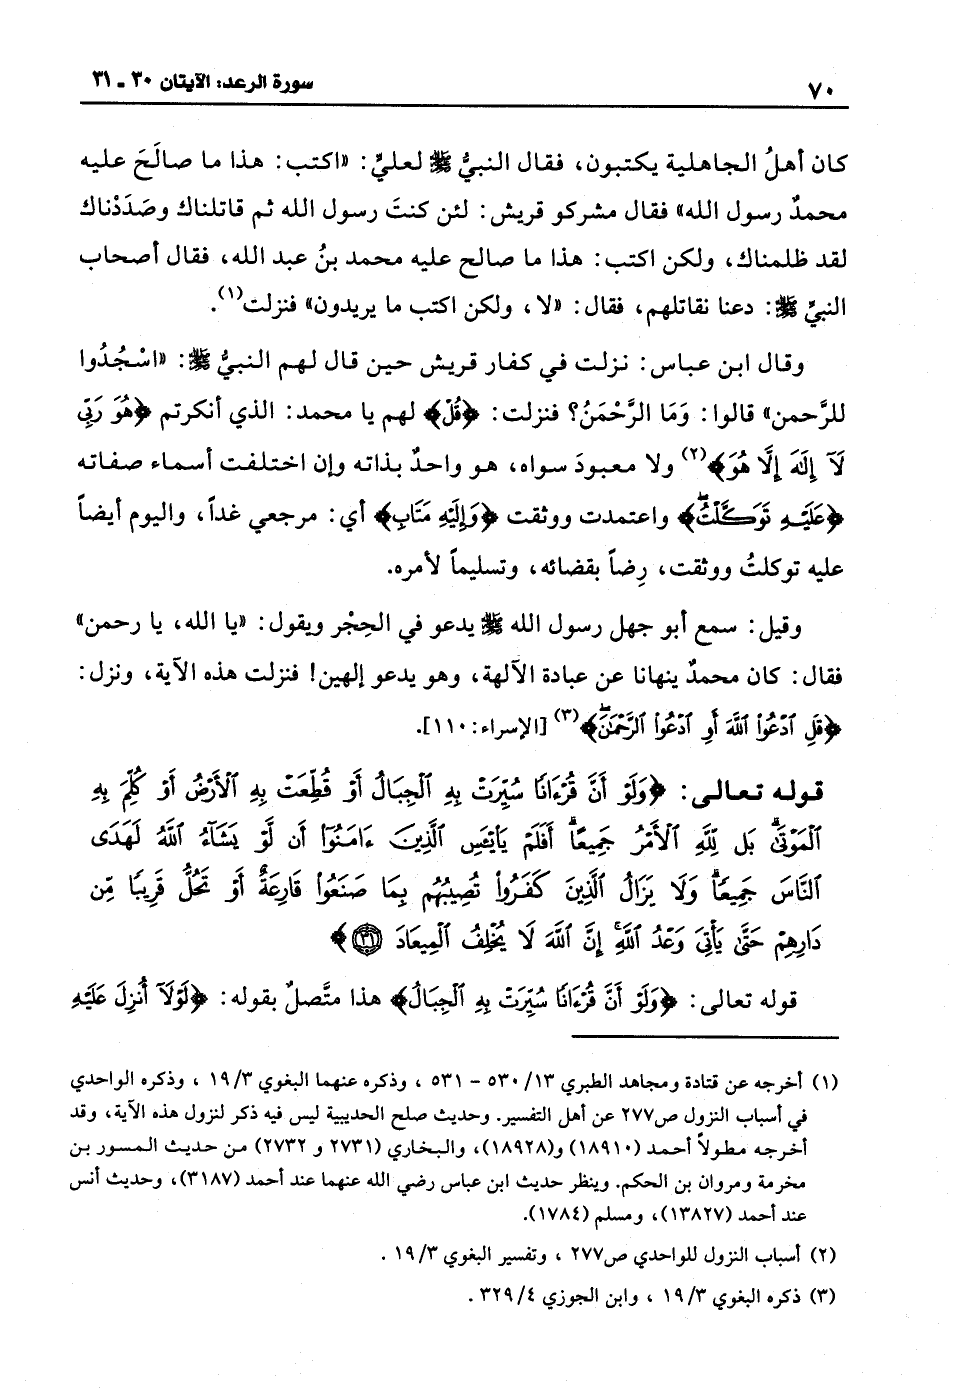 ٧٠ سورة الرعد: الآيتان ٣٠ ـ ٣١
كان أهلُ الجاهلية يكتبون، فقال النبيُّ ﷺ لعليٍّ: «اكتب: هذا ما صالَحَ عليه
محمدٌ رسول الله» فقال مشركو قريش: لئن كنتَ رسول الله ثم قاتلناك وصَدَدْناك
لقد ظلمناك، ولكن اكتب: هذا ما صالح عليه محمد بنُ عبد الله، فقال أصحاب
النبيِّ ﷺ: دعنا نقاتلهم، فقال: «لا، ولكن اكتب ما يريدون» فنزلت(١).
وقال ابن عباس: نزلت في كفار قريش حين قال لهم النبيُّ ﷺ: «اسْجُدُوا
للرَّحمن» قالوا: وَمَا الرَّحْمَنُ؟ فنزلت: ﴿قُلْ﴾ لهم يا محمد: الذي أنكرتم ﴿هُوَ رَبِّى
لَآ إِلَٰهَ إِلَّا هُوَ﴾(٢) ولا معبودَ سواه، هو واحدٌ بذاته وإن اختلفت أسماء صفاته
﴿عَلَيْهِ تَوَكَّلْتُ﴾ واعتمدت ووثقت ﴿وَإِلَيْهِ مَتَابِ﴾ أي: مرجعي غداً، واليوم أيضاً
عليه توكلتُ ووثقت، رِضاً بقضائه، وتسليماً لأمره.
وقيل: سمع أبو جهل رسول الله ﷺ يدعو في الحِجْر ويقول: «يا الله، يا رحمن»
فقال: كان محمدٌ ينهانا عن عبادة الآلهة، وهو يدعو إلهين! فنزلت هذه الآية، ونزل:
﴿قُلِ ٱدْعُوا۟ ٱللَّهَ أَوِ ٱدْعُوا۟ ٱلرَّحْمَٰنَ﴾(٣) [الإسراء: ١١٠].
قوله تعالى: ﴿وَلَوْ أَنَّ قُرْءَانًا سُيِّرَتْ بِهِ ٱلْجِبَالُ أَوْ قُطِّعَتْ بِهِ ٱلْأَرْضُ أَوْ كُلِّمَ بِهِ
ٱلْمَوْتَىٰ بَل لِّلَّهِ ٱلْأَمْرُ جَمِيعًا أَفَلَمْ يَا۟يْـَٔسِ ٱلَّذِينَ ءَامَنُوٓا۟ أَن لَّوْ يَشَآءُ ٱللَّهُ لَهَدَى
ٱلنَّاسَ جَمِيعًا وَلَا يَزَالُ ٱلَّذِينَ كَفَرُوا۟ تُصِيبُهُم بِمَا صَنَعُوا۟ قَارِعَةٌ أَوْ تَحُلُّ قَرِيبًا مِّن
دَارِهِمْ حَتَّىٰ يَأْتِىَ وَعْدُ ٱللَّهِ إِنَّ ٱللَّهَ لَا يُخْلِفُ ٱلْمِيعَادَ ٣١﴾
قوله تعالى: ﴿وَلَوْ أَنَّ قُرْءَانًا سُيِّرَتْ بِهِ ٱلْجِبَالُ﴾ هذا متَّصلٌ بقوله: ﴿لَوْلَآ أُنزِلَ عَلَيْهِ
(١) أخرجه عن قتادة ومجاهد الطبري ١٣/ ٥٣٠ - ٥٣١ ، وذكره عنهما البغوي ٣/ ١٩ ، وذكره الواحدي
في أسباب النزول ص٢٧٧ عن أهل التفسير. وحديث صلح الحديبية ليس فيه ذكر لنزول هذه الآية، وقد
أخرجه مطولاً أحمد (١٨٩١٠) و(١٨٩٢٨)، والبخاري (٢٧٣١ و ٢٧٣٢) من حديث المسور بن
مخرمة ومروان بن الحكم. وينظر حديث ابن عباس رضي الله عنهما عند أحمد (٣١٨٧)، وحديث أنس
عند أحمد (١٣٨٢٧)، ومسلم (١٧٨٤).
(٢) أسباب النزول للواحدي ص٢٧٧ ، وتفسير البغوي ٣/ ١٩ .
(٣) ذكره البغوي ٣/ ١٩ ، وابن الجوزي ٤/ ٣٢٩ .